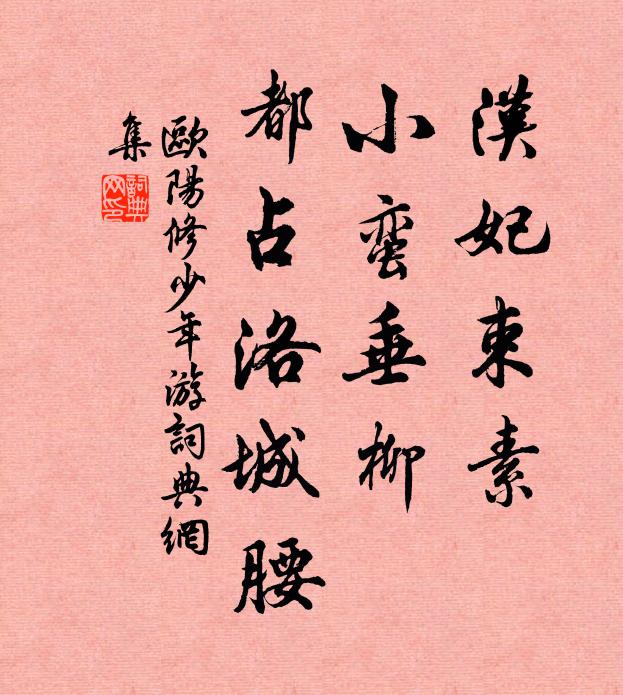 漢妃束素
小蛮垂柳
都占洛城腰
歐陽修少年游詞典網
集
詞典网印